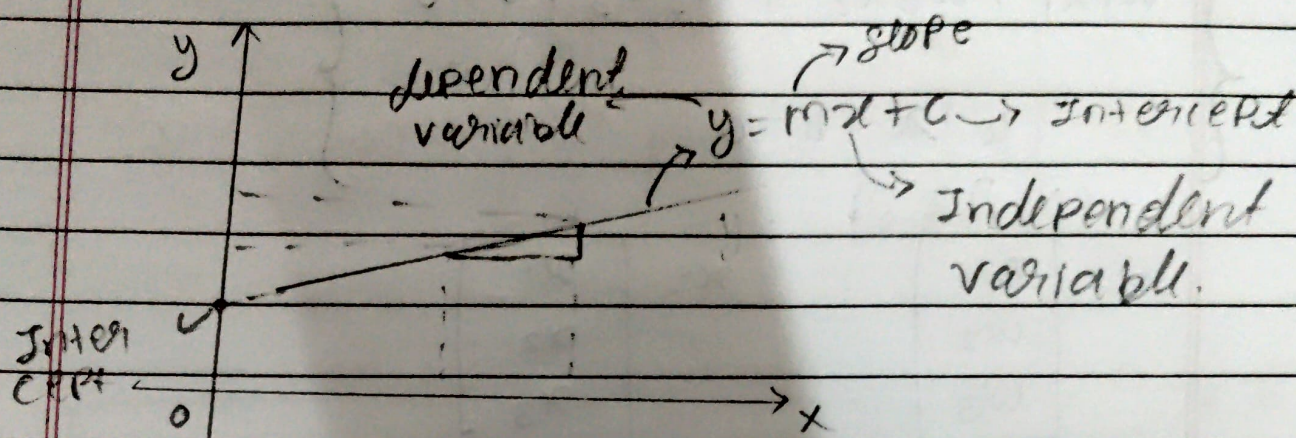 y
slope
dependent
variable
y = mx + c → Intercept
Independent
variable.
Inter
cept
0
x